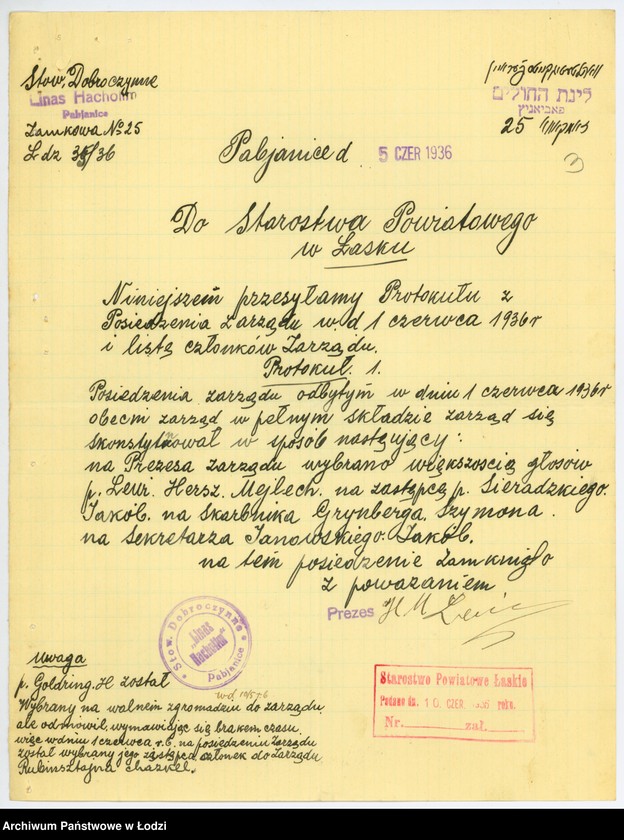 Stow. Dobroczynne
Linas Hacholim
Pabjanice
Zamkowa No 25
L dz 35/36
לינת החולים
פאביאניץ
25
Pabjanice d 5 CZER 1936
Do Starostwa Powiatowego
w Łasku
Niniejszem przesyłamy Protokułu z
Posiedzenia Zarządu w. d 1 czerwca 1936 r
i listą członków Zarządu.
Protokuł. 1.
Posiedzenia zarządu odbytym w dniu 1 czerwca 1936 r
obecni zarząd w pełnym składzie zarząd się
skonstytuował w sposób następujący:
na Prezesa zarządu wybrano większoscią głosów
p. Lewi. Hersz. Mejlech. na zastępcą p. Sieradzkiego.
Jakób. na Skarbnika Grynberga. Szymona.
na Sekretarza Janowskiego. Jakób.
na tem posiedzenie zamknięło
z powazaniem
Prezes H M Lewi
Stow. Dobroczynne
"Linas
Hacholim"
Pabjanice
Uwaga
p. Goldring. H został
w d 10/5 r b
Wybrany na walnem zgromadzeniu do zarządu
ale odmówił, wymawiając się brakem czasu
więc w dniu 1 czerwca r. b. na posiedzeniu Zarządu
został wybrany jego zastępca członek do Zarządu
Rubinsztajna Chaskel.
Starostwo Powiatowe Łaskie
Podano dn. 10. CZER. 1936 roku.
Nr. zał.
Archiwum Państwowe w Łodzi